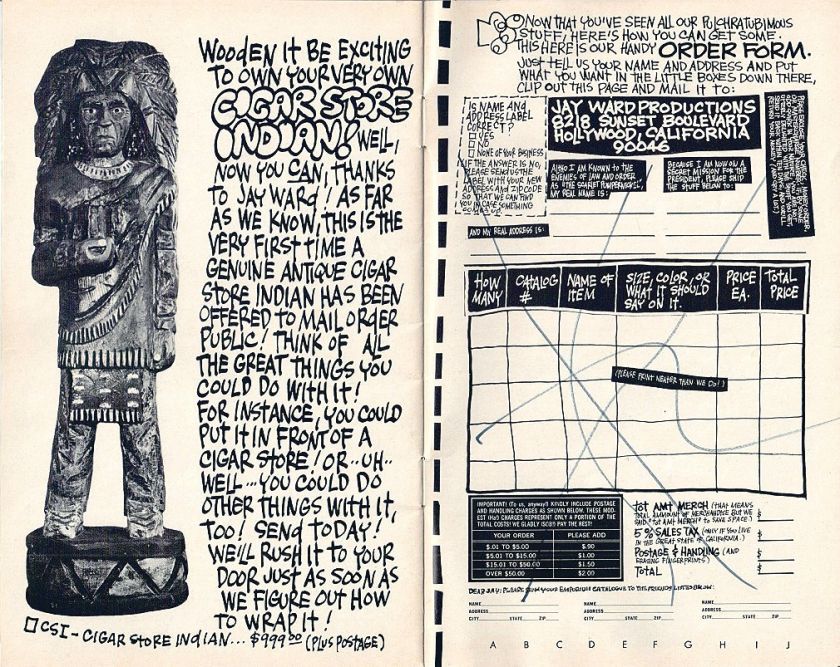 WOODEN IT BE EXCITING
TO OWN YOUR VERY OWN
CIGAR STORE
INDIAN! WELL,
NOW YOU CAN, THANKS
TO JAY WARD! AS FAR
AS WE KNOW, THIS IS THE
VERY FIRST TIME A
GENUINE ANTIQUE CIGAR
STORE INDIAN HAS BEEN
OFFERED TO MAIL ORDER
PUBLIC! THINK OF ALL
THE GREAT THINGS YOU
COULD DO WITH IT!
FOR INSTANCE, YOU COULD
PUT IT IN FRONT OF A
CIGAR STORE! OR..UH..
WELL...YOU COULD DO
OTHER THINGS WITH IT,
TOO! SEND TODAY!
WE'LL RUSH IT TO YOUR
DOOR JUST AS SOON AS
WE FIGURE OUT HOW
TO WRAP IT!
CSI - CIGAR STORE INDIAN... $999.00 (PLUS POSTAGE)
NOW THAT YOU'VE SEEN ALL OUR PULCHRATUBIMOUS
STUFF, HERE'S HOW YOU CAN GET SOME.
THIS HERE IS OUR HANDY ORDER FORM.
JUST TELL US YOUR NAME AND ADDRESS AND PUT
WHAT YOU WANT IN THE LITTLE BOXES DOWN THERE,
CLIP OUT THIS PAGE AND MAIL IT TO:
IS NAME AND
ADDRESS LABEL
CORRECT?
YES
NO
NONE OF YOUR BUSINESS
IF THE ANSWER IS NO,
PLEASE SEND US THE
LABEL WITH YOUR NEW
ADDRESS AND ZIP CODE
SO THAT WE CAN FIND
YOU IN CASE SOMETHING
COMES UP.
JAY WARD PRODUCTIONS
8218 SUNSET BOULEVARD
HOLLYWOOD, CALIFORNIA
90046
ALSO I AM KNOWN TO THE
ENEMIES OF LAW AND ORDER
AS THE SCARLET PUMPERNICKEL,
MY REAL NAME IS:
BECAUSE I AM NOW ON A
SECRET MISSION FOR THE
PRESIDENT, PLEASE SHIP
THE STUFF BELOW TO:
AND MY REAL ADDRESS IS:
HOW MANY
CATALOG #
NAME OF ITEM
SIZE, COLOR, OR WHAT IT SHOULD SAY ON IT.
PRICE EA.
TOTAL PRICE
(PLEASE PRINT NEATER THAN WE DO!)
IMPORTANT! (To us, anyway!) KINDLY INCLUDE POSTAGE
AND HANDLING CHARGES AS SHOWN BELOW. THESE MOD-
EST (Ho!) CHARGES REPRESENT ONLY A PORTION OF THE
TOTAL COSTS! WE GLADLY (SOB!) PAY THE REST!
YOUR ORDER PLEASE ADD
$.01 TO $5.00 $.90
$5.01 TO $15.00 $1.00
$15.01 TO $50.00 $1.50
OVER $50.00 $2.00
TOT AMT MERCH (THAT MEANS
TOTAL AMOUNT OF MERCHANDISE BUT WE
SAID "TOT AMT MERCH" TO SAVE SPACE) $
5% SALES TAX (ONLY IF YOU LIVE
IN THE GREAT STATE OF CALIFORNIA.) $
POSTAGE & HANDLING (AND
ERASING FINGERPRINTS) $
TOTAL $
DEAR JAY: PLEASE SEND YOUR EMPORIUM CATALOGUE TO THE FRIENDS LISTED BELOW:
NAME NAME NAME
ADDRESS ADDRESS ADDRESS
CITY STATE ZIP CITY STATE ZIP CITY STATE ZIP
A B C D E F G H I J